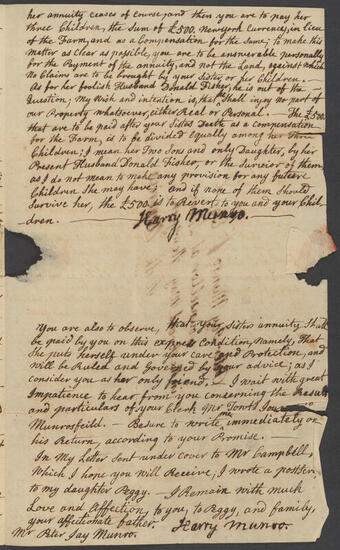 her annuity ceases of course, and then you are to pay her
three Children, the Sum of £500. Newyork Currency, in lieu
of the Farm, and as a Compensation for the Same; to make this
matter as clear as possible, you are to be answerable personally
for the Payment of the annuity, and not the Land, against which
No Claims are to be brought by your Sister or her Children.
As for her foolish Husband Donald Fisher, he is out of the
Question; My Wish and intention is, that Shall injoy no part of
our Property whatsoever, either Real or Personal. The £500
that are to be paid after your Sisters Death as a Compensation
for the Farm, is to be divided equally among her three
Children; I mean her Two Sons and only Daughter, by her
Present Husband Donald Fisher, or the Survivor of them,
as I do not mean to make any provision for any future
Children She may have; And if none of them Should
Survive her, the £500 is to Revert to you and your Chil-
dren.
Harry Munro.
You are also to observe, that your Sisters annuity Shall
be paid by you on this express Condition, Namely, That
She puts herself under your care and Protection, and
will be Ruled and Governed by your advice; as I
consider you as her only friend; — I wait with great
Impatience to hear from you concerning the Result
and particulars of your Clerk Mr
Munrosfeild. — Besure to write immediately on
his Return, according to your Promise. —
In my Letter Sent under cover to Mr Campbell,
which I hope you will Receive, I wrote a postscript
to my daughter Peggy. — I Remain with much
Love and Affection, to you, to Peggy, and family,
your affectionate father. Harry Munro.
Mr Peter Jay Munro.